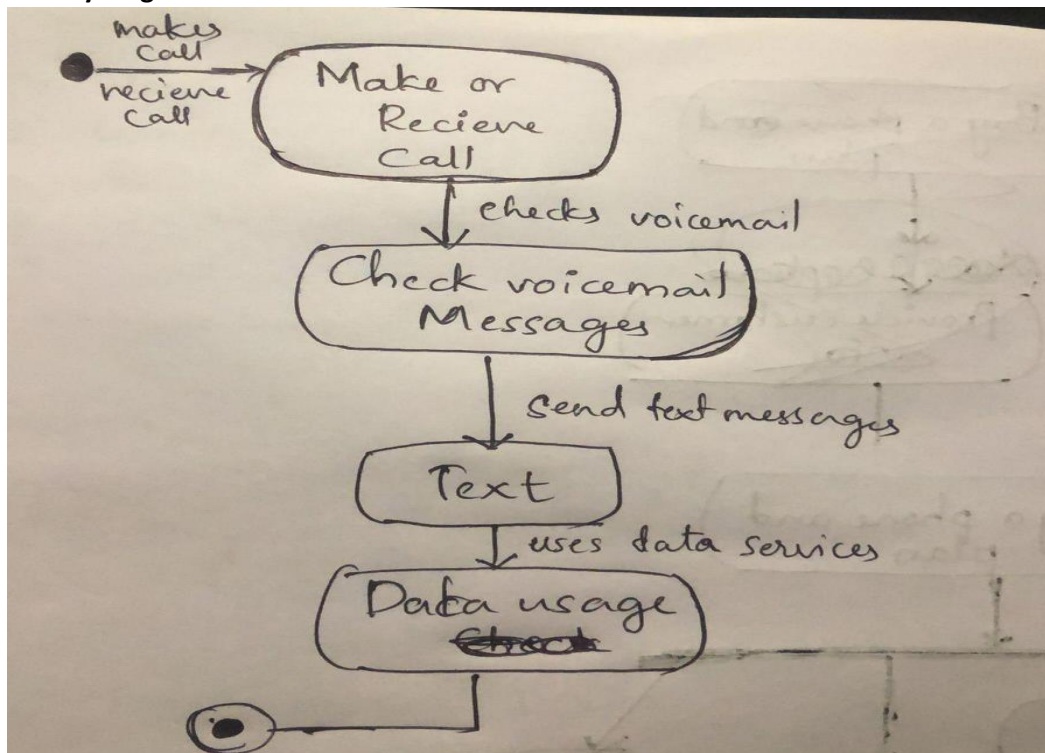 makes
call
recieve
call
Make or
Recieve
Call
checks voicemail
Check voicemail
Messages
send text messages
Text
uses data services
Data usage